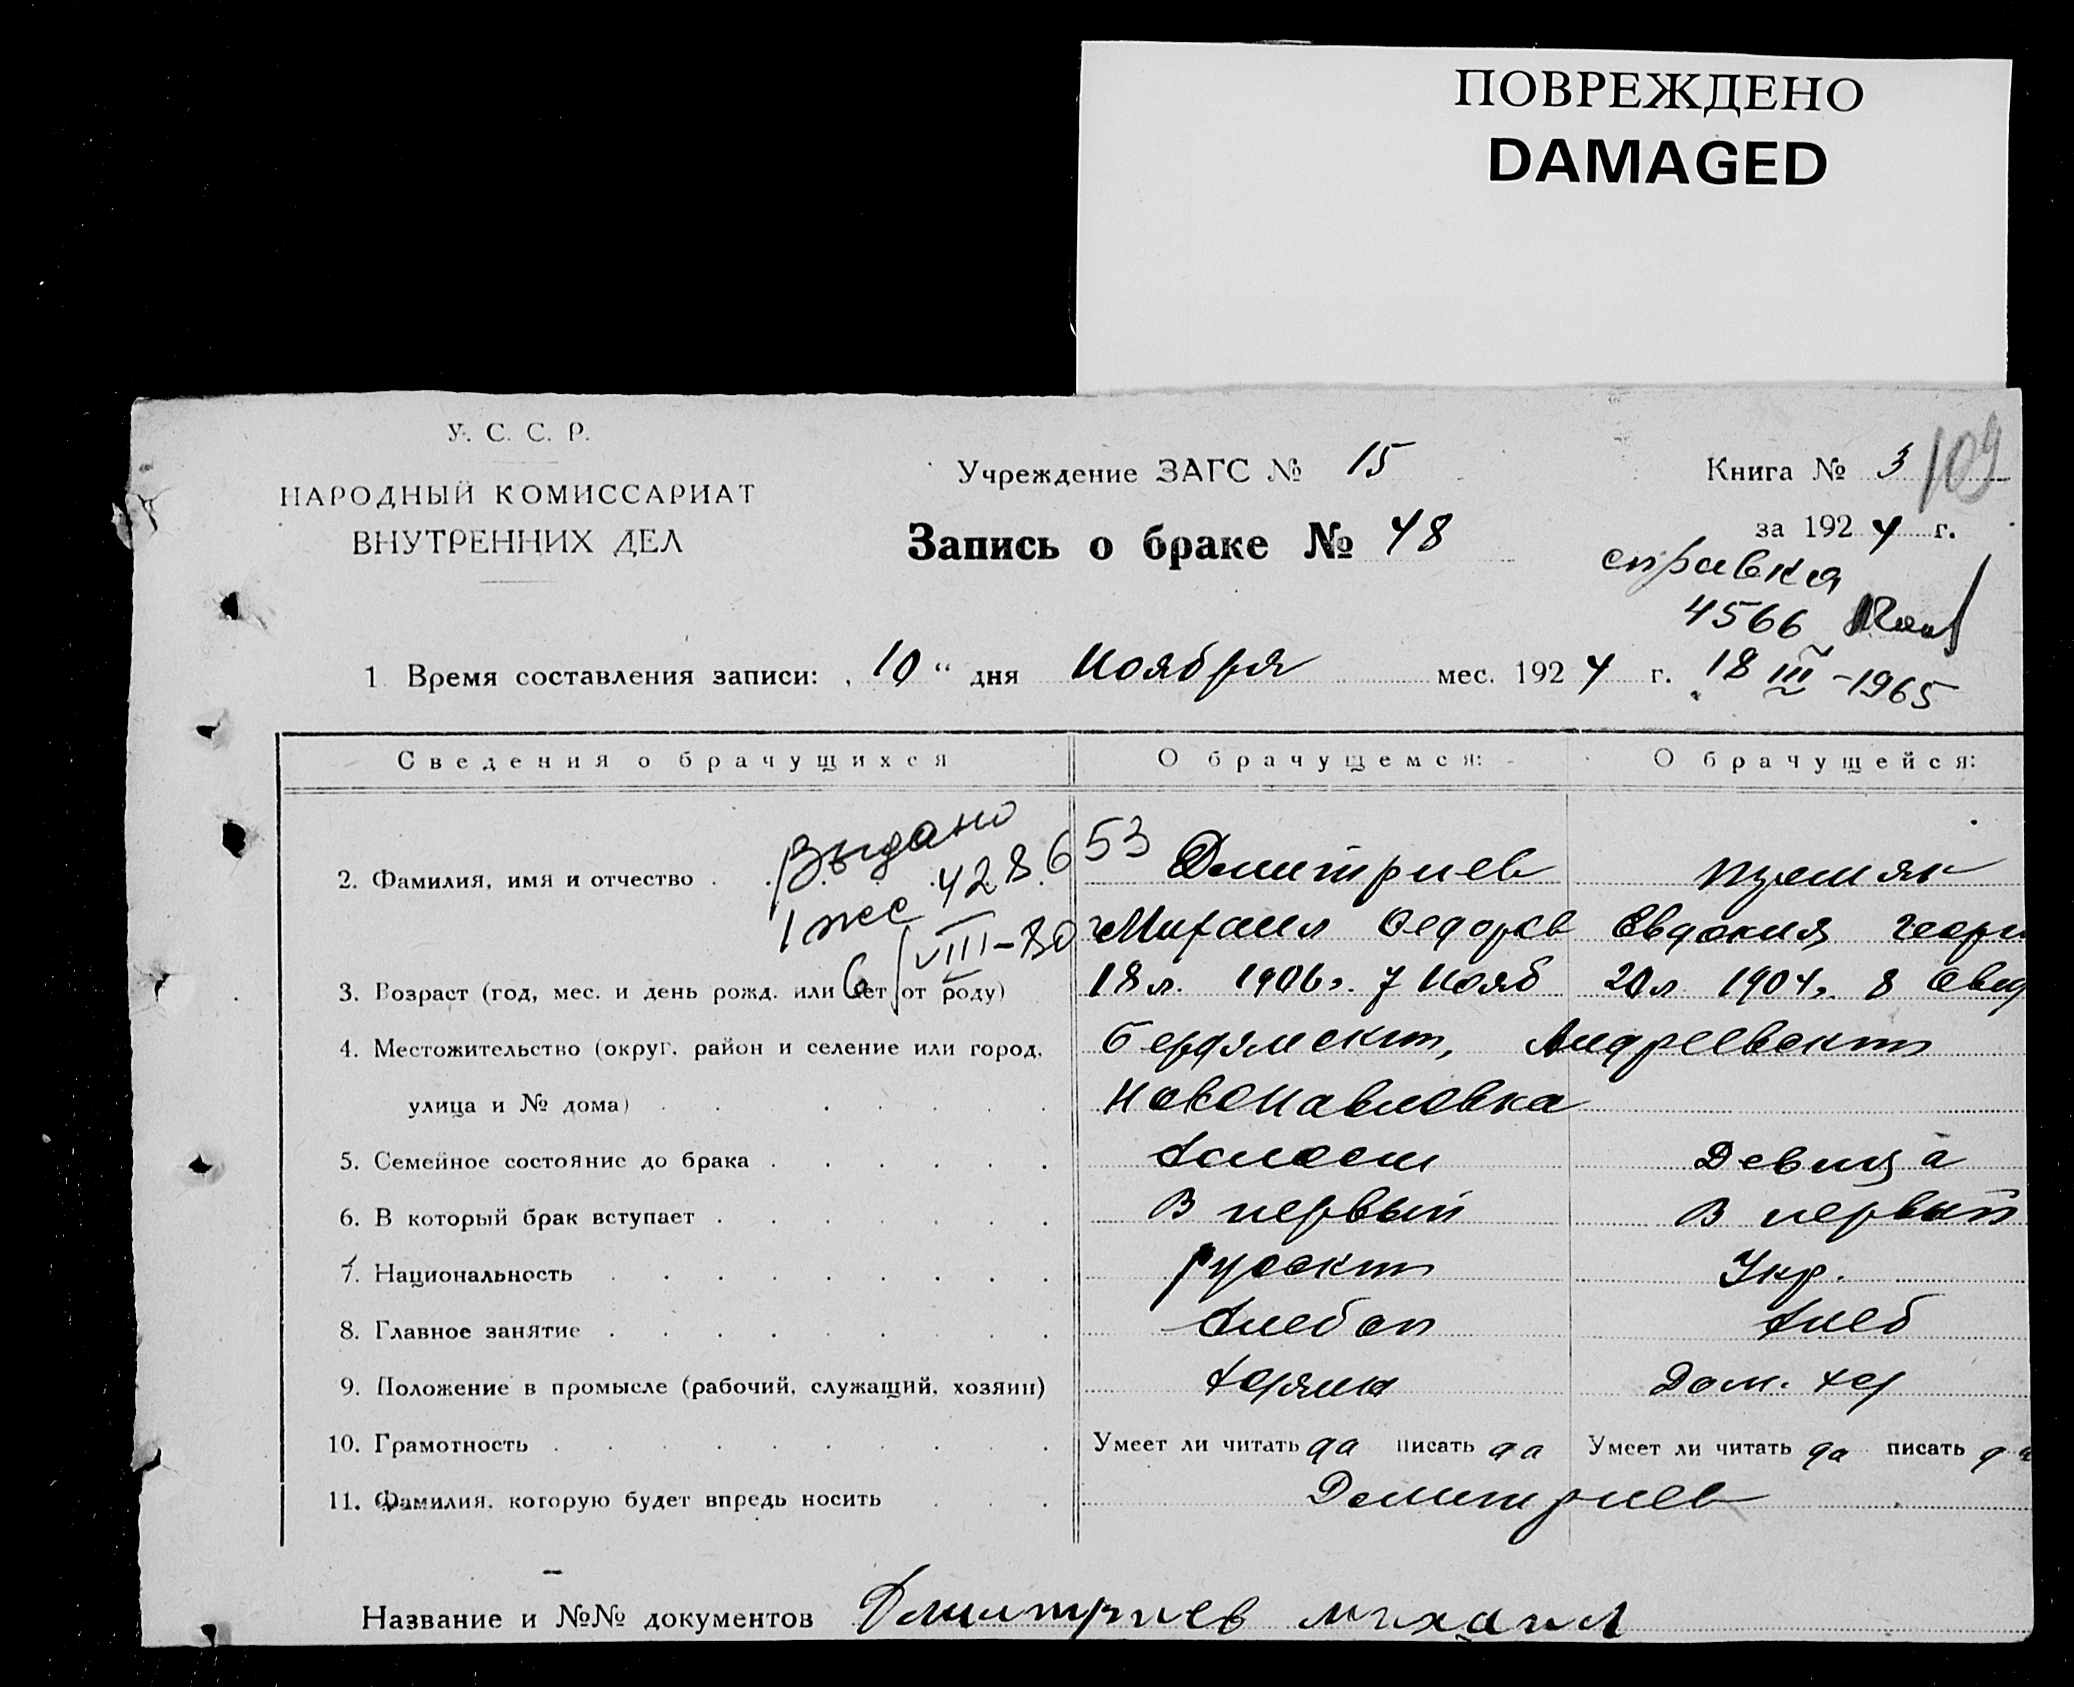 ПОВРЕЖДЕНО
DAMAGED
У. С. С. Р.
НАРОДНЫЙ КОМИССАРИАТ
ВНУТРЕННИХ ДЕЛ
Учреждение ЗАГС № 15
Книга № 3
109
Запись о браке № 48
за 1924 г.
справка
4566
18 III - 1965
1 Время составления записи: „ 10 “ дня Ноября мес. 1924 г.
Сведения о брачущихся О брачущемся: О брачущейся:
Выдано
1 экс 4286
6/VIII-80
53
2. Фамилия, имя и отчество Дмитриев
Михаил Федоров Евдокия Георг
3. Возраст (год, мес. и день рожд. или лет от роду) 18 л. 1906 г. 7 Нояб 20 л 1904 г. 8
4. Местожительство (округ, район и селение или город, Бердянский, Андреевский
улица и № дома) Новопавловка
5. Семейное состояние до брака Холост Девица
6. В который брак вступает В первый В первый
7. Национальность русский Укр.
8. Главное занятие Хлебоп Хлеб
9. Положение в промысле (рабочий, служащий, хозяин) Дом. хоз
10. Грамотность Умеет ли читать да писать да Умеет ли читать да писать да
11. Фамилия, которую будет впредь носить Дмитриев
Название и №№ документов Дмитриев Михаил